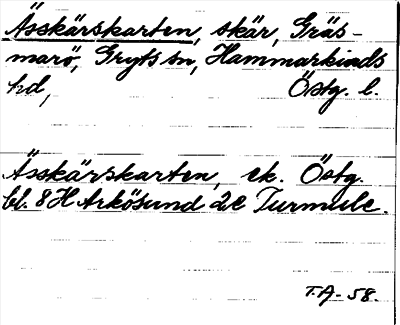 Ässkärskarten, skär, Gräs-
marö, Gryts sn, Hammarkinds
hd, Östg. l.
Ässkärskarten, ek. Östg.
bl. 8 H Arkösund 2c Turmule.
T.A. 58.